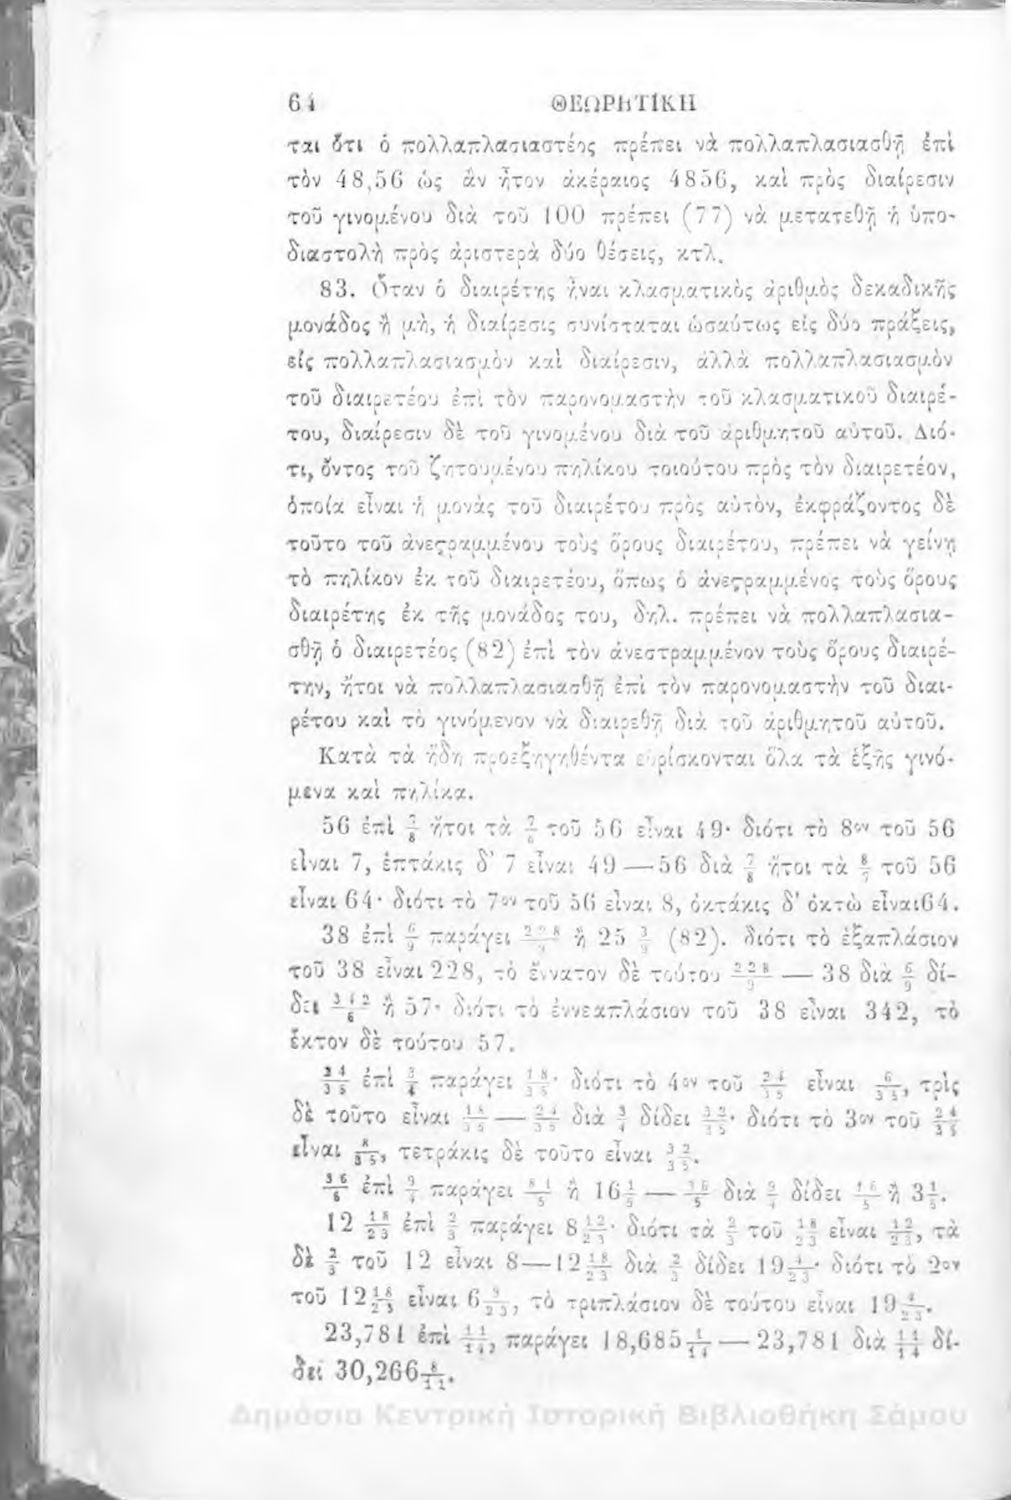 64 ΘΕΩΡΗΤΙΚΗ
ται ὅτι ὁ πολλαπλασιαστέος πρέπει νὰ πολλαπλασιασθῇ ἐπὶ
τὸν 48,56 ὡς ἂν ἦτον ἀκέραιος 4856, καὶ πρὸς διαίρεσιν
τοῦ γινομένου διὰ τοῦ 100 πρέπει (77) νὰ μετατεθῇ ἡ ὑπο-
διαστολὴ πρὸς ἀριστερὰ δύο θέσεις, κτλ.
83. Ὅταν ὁ διαιρέτης ἦναι κλασματικὸς ἀριθμὸς δεκαδικῆς
μονάδος ἢ μὴ, ἡ διαίρεσις συνίσταται ὡσαύτως εἰς δύο πράξεις,
εἰς πολλαπλασιασμὸν καὶ διαίρεσιν, ἀλλὰ πολλαπλασιασμὸν
τοῦ διαιρετέου ἐπὶ τὸν παρονομαστὴν τοῦ κλασματικοῦ διαιρέ-
του, διαίρεσιν δὲ τοῦ γινομένου διὰ τοῦ ἀριθμητοῦ αὐτοῦ. Διό-
τι, ὄντος τοῦ ζητουμένου πηλίκου τοιούτου πρὸς τὸν διαιρετέον,
ὁποία εἶναι ἡ μονὰς τοῦ διαιρέτου πρὸς αὐτὸν, ἐκφράζοντος δὲ
τοῦτο τοῦ ἀνεστραμμένου τοὺς ὅρους διαιρέτου, πρέπει νὰ γείνῃ
τὸ πηλίκον ἐκ τοῦ διαιρετέου, ὅπως ὁ ἀνεστραμμένος τοὺς ὅρους
διαιρέτης ἐκ τῆς μονάδος του, δηλ. πρέπει νὰ πολλαπλασια-
σθῇ ὁ διαιρετέος (82) ἐπὶ τὸν ἀνεστραμμένον τοὺς ὅρους διαιρέ-
την, ἤτοι νὰ πολλαπλασιασθῇ ἐπὶ τὸν παρονομαστὴν τοῦ διαι-
ρέτου καὶ τὸ γινόμενον νὰ διαιρεθῇ διὰ τοῦ ἀριθμητοῦ αὐτοῦ.
Κατὰ τὰ ἤδη προεξηγηθέντα εὑρίσκονται ὅλα τὰ ἑξῆς γινό-
μενα καὶ πηλίκα.
56 ἐπὶ 7/8 ἤτοι τὰ 7/8 τοῦ 56 εἶναι 49· διότι τὸ 8ον τοῦ 56
εἶναι 7, ἑπτάκις δ' 7 εἶναι 49 — 56 διὰ 7/8 ἤτοι τὰ 8/7 τοῦ 56
εἶναι 64· διότι τὸ 7ον τοῦ 56 εἶναι 8, ὀκτάκις δ' ὀκτὼ εἶναι 64.
38 ἐπὶ 6/9 παράγει 228/9 ἢ 25 3/9 (82). διότι τὸ ἑξαπλάσιον
τοῦ 38 εἶναι 228, τὸ ἔννατον δὲ τούτου 228/9 — 38 διὰ 6/9 δί-
δει 342/6 ἢ 57· διότι τὸ ἐννεαπλάσιον τοῦ 38 εἶναι 342, τὸ
ἕκτον δὲ τούτου 57.
24/35 ἐπὶ 3/4 παράγει 18/35· διότι τὸ 4ον τοῦ 24/35 εἶναι 6/35, τρὶς
δὲ τοῦτο εἶναι 18/35 — 24/35 διὰ 3/4 δίδει 32/35· διότι τὸ 3ον τοῦ 24/35
εἶναι 8/35, τετράκις δὲ τοῦτο εἶναι 32/35.
36/5 ἐπὶ 9/4 παράγει 81/5 ἢ 16 1/5 — 36/5 διὰ 9/4 δίδει 16/5 ἢ 3 1/5.
12 18/23 ἐπὶ 2/3 παράγει 8 12/23· διότι τὰ 2/3 τοῦ 18/23 εἶναι 12/23, τὰ
δὲ 2/3 τοῦ 12 εἶναι 8 — 12 18/23 διὰ 2/3 δίδει 19 4/23· διότι τὸ 2ον
τοῦ 12 18/23 εἶναι 6 9/23, τὸ τριπλάσιον δὲ τούτου εἶναι 19 4/23.
23,781 ἐπὶ 11/14, παράγει 18,685 1/14 — 23,781 διὰ 11/14 δί-
δει 30,266 8/11.
Δημόσια Κεντρική Ιστορική Βιβλιοθήκη Σάμου